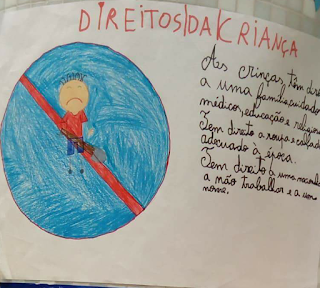 DIREITOS DA CRIANÇA
As crinças têm
a uma família, cuidados
médicos, educação e
Tem direito a roupa e calçado
adequado à época.
Tem direito à uma
a não trabalhar e a um
nome.